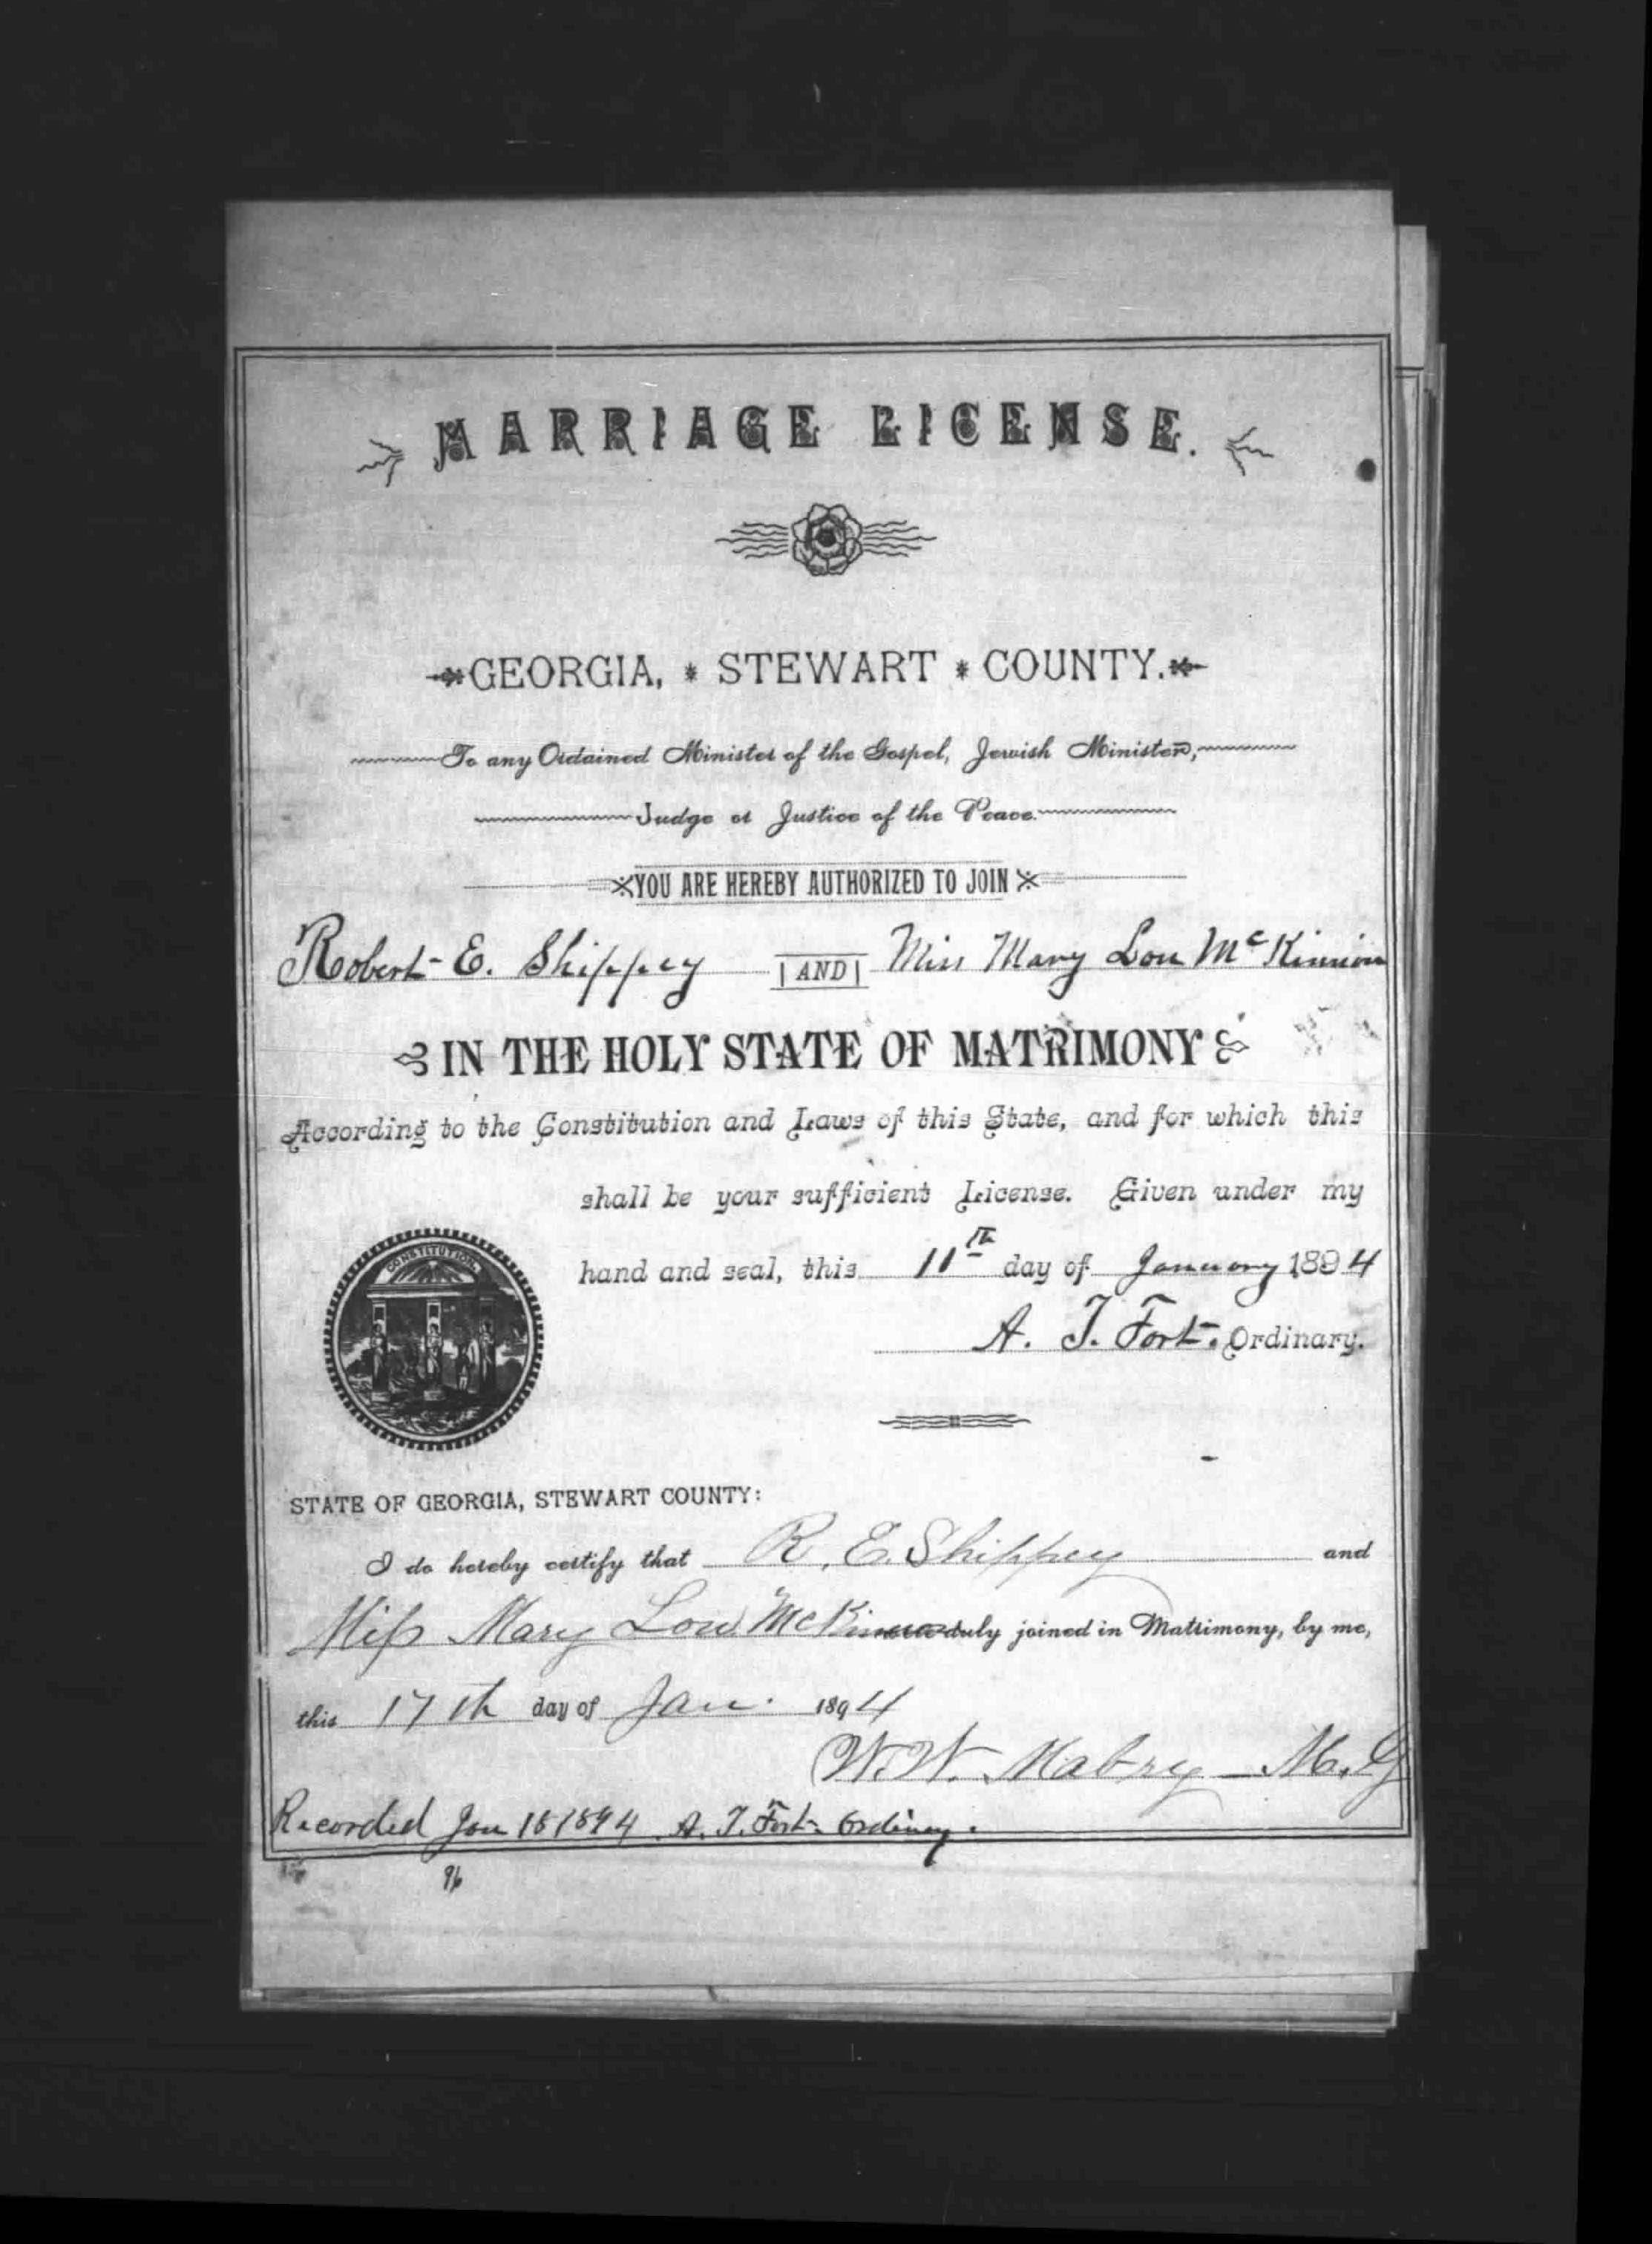 MARRIAGE LICENSE.
GEORGIA, * STEWART * COUNTY.
To any Ordained Minister of the Gospel, Jewish Minister,
Judge or Justice of the Peace.
YOU ARE HEREBY AUTHORIZED TO JOIN
Robert E. Shippey AND Miss Mary Lou McKinnon
IN THE HOLY STATE OF MATRIMONY
According to the Constitution and Laws of this State, and for which this
shall be your sufficient License. Given under my
hand and seal, this 11th day of January 1894
A. T. Fort. Ordinary.
CONSTITUTION
STATE OF GEORGIA, STEWART COUNTY:
I do hereby certify that R. E. Shippey and
Miss Mary Lou duly joined in Matrimony, by me,
this 17th day of Jan. 1894
W. W. Mabry M. G
Recorded Jan 18 1894 A. T. Fort Ordinary.
96